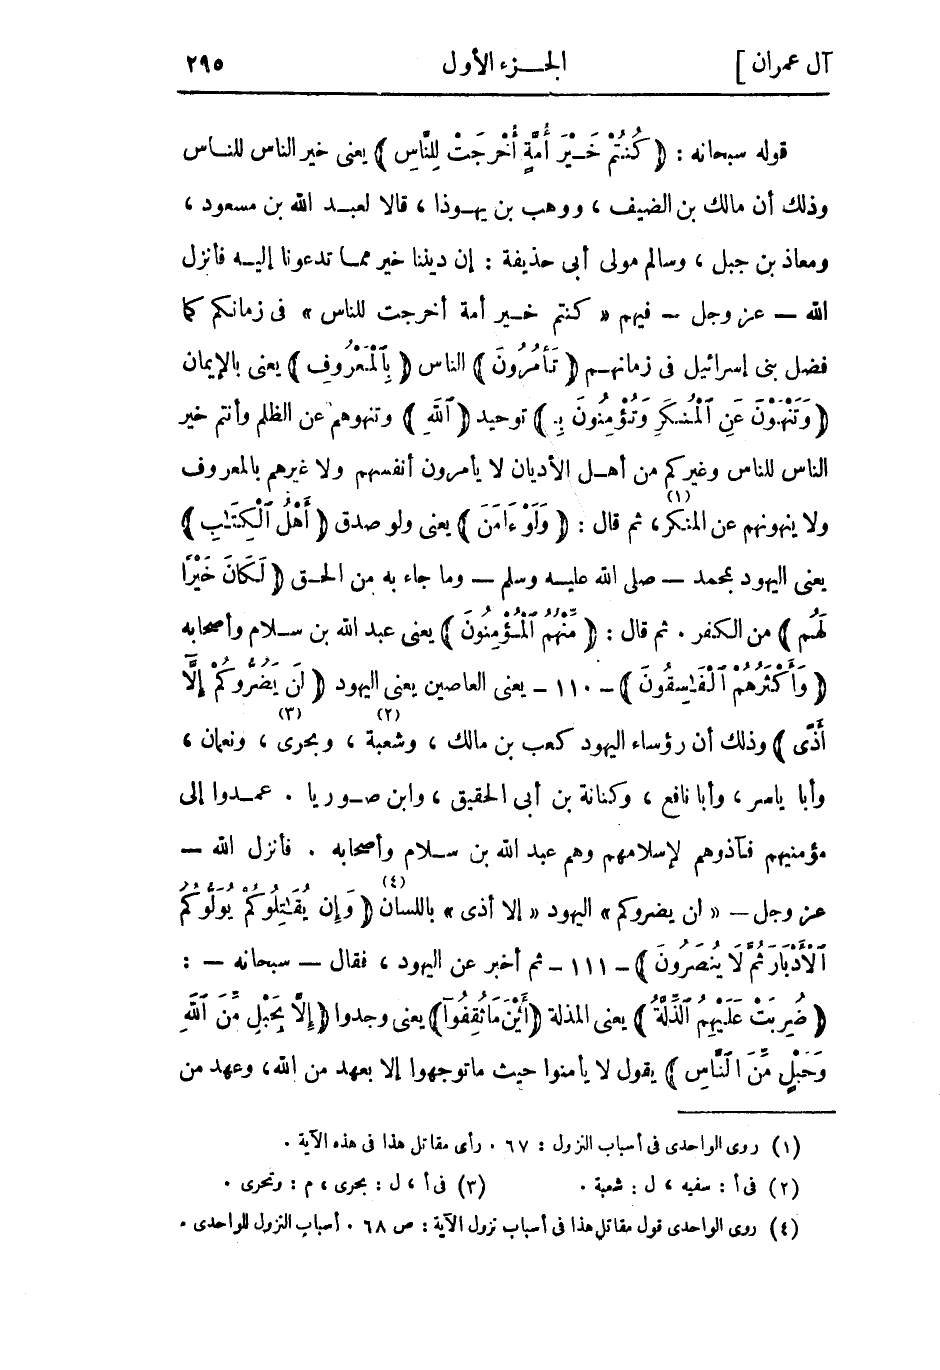 آل عمران ] الجــزء الأول ٢٩٥
قوله سبحانه : ﴿ كُنتُمْ خَيْرَ أُمَّةٍ أُخْرِجَتْ لِلنَّاسِ ﴾ يعنى خير الناس للنــاس
وذلك أن مالك بن الضيف ، ووهب بن يهــوذا ، قالا لعبــد الله بن مسعود ،
ومعاذ بن جبل ، وسالم مولى أبى حذيفة : إن ديننا خير ممـا تدعونا إليـه فأنزل
الله — عز وجل — فيهم « كنتم خــير أمة أخرجت للناس » فى زمانكم كما
فضل بنى إسرائيل فى زمانهــم ﴿ تَأْمُرُونَ ﴾ الناس ﴿ بِٱلْمَعْرُوفِ ﴾ يعنى بالإيمان
﴿ وَتَنْهَوْنَ عَنِ ٱلْمُنكَرِ وَتُؤْمِنُونَ بِـ ﴾ توحيد ﴿ ٱللَّهِ ﴾ وتنهوهم عن الظلم وأنتم خير
الناس للناس وغيركم من أهــل الأديان لا يأمرون أنفسهم ولا غيرهم بالمعروف
ولا ينهونهم عن المنكر(١)، ثم قال : ﴿ وَلَوْ ءَامَنَ ﴾ يعنى ولو صدق ﴿ أَهْلُ ٱلْكِتَـٰبِ ﴾
يعنى اليهود بمحمد — صلى الله عليــه وسلم — وما جاء به من الحــق ﴿ لَكَانَ خَيْرًا
لَهُم ﴾ من الكفر . ثم قال : ﴿ مِّنْهُمُ ٱلْمُؤْمِنُونَ ﴾ يعنى عبد الله بن ســلام وأصحابه
﴿ وَأَكْثَرُهُمُ ٱلْفَـٰسِقُونَ ﴾ – ١١٠ – يعنى العاصين يعنى اليهود ﴿ لَن يَضُرُّوكُمْ إِلَّآ
أَذًى ﴾ وذلك أن رؤساء اليهود كعب بن مالك ، وشعبة(٢) ، وبحرى(٣) ، ونعمان ،
وأبا ياسر ، وأبا نافع ، وكنانة بن أبى الحقيق ، وابن صــوريا . عمــدوا إلى
مؤمنيهم فـآذوهم لإسلامهم وهم عبد الله بن ســلام وأصحابه . فأنزل الله —
عز وجل — « لن يضروكم » اليهود « إلا أذى » باللسان(٤) ﴿ وَإِن يُقَـٰتِلُوكُمْ يُوَلُّوكُمُ
ٱلْأَدْبَارَ ثُمَّ لَا يُنصَرُونَ ﴾ – ١١١ – ثم أخبر عن اليهود ، فقال — سبحانه — :
﴿ ضُرِبَتْ عَلَيْهِمُ ٱلذِّلَّةُ ﴾ يعنى المذلة ﴿ أَيْنَ مَا ثُقِفُوٓا ﴾ يعنى وجدوا ﴿ إِلَّا بِحَبْلٍ مِّنَ ٱللَّهِ
وَحَبْلٍ مِّنَ ٱلنَّاسِ ﴾ يقول لا يأمنوا حيث ماتوجهوا إلا بعهد من الله، وعهد من
(١) روى الواحدى فى أسباب النزول : ٦٧ . رأى مقاتل هذا فى هذه الآية .
(٢) فى أ : سفيه ، ل : شعبة . (٣) فى أ ، ل : بحرى ، م : وتحرى .
(٤) روى الواحدى قول مقاتل هذا فى أسباب نزول الآية : ص ٦٨ . أسباب النزول للواحدى .